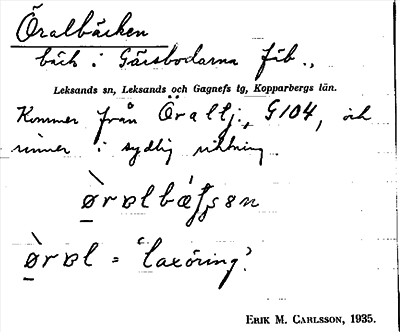 Öralbäcken
bäck i Gärsbodarna fäb.,
Leksands sn, Leksands och Gagnefs tg, Kopparbergs län.
Kommer från Öraltj., G104, och
rinner i sydlig riktning.
= 'laxöring'.
ERIK M. CARLSSON, 1935.